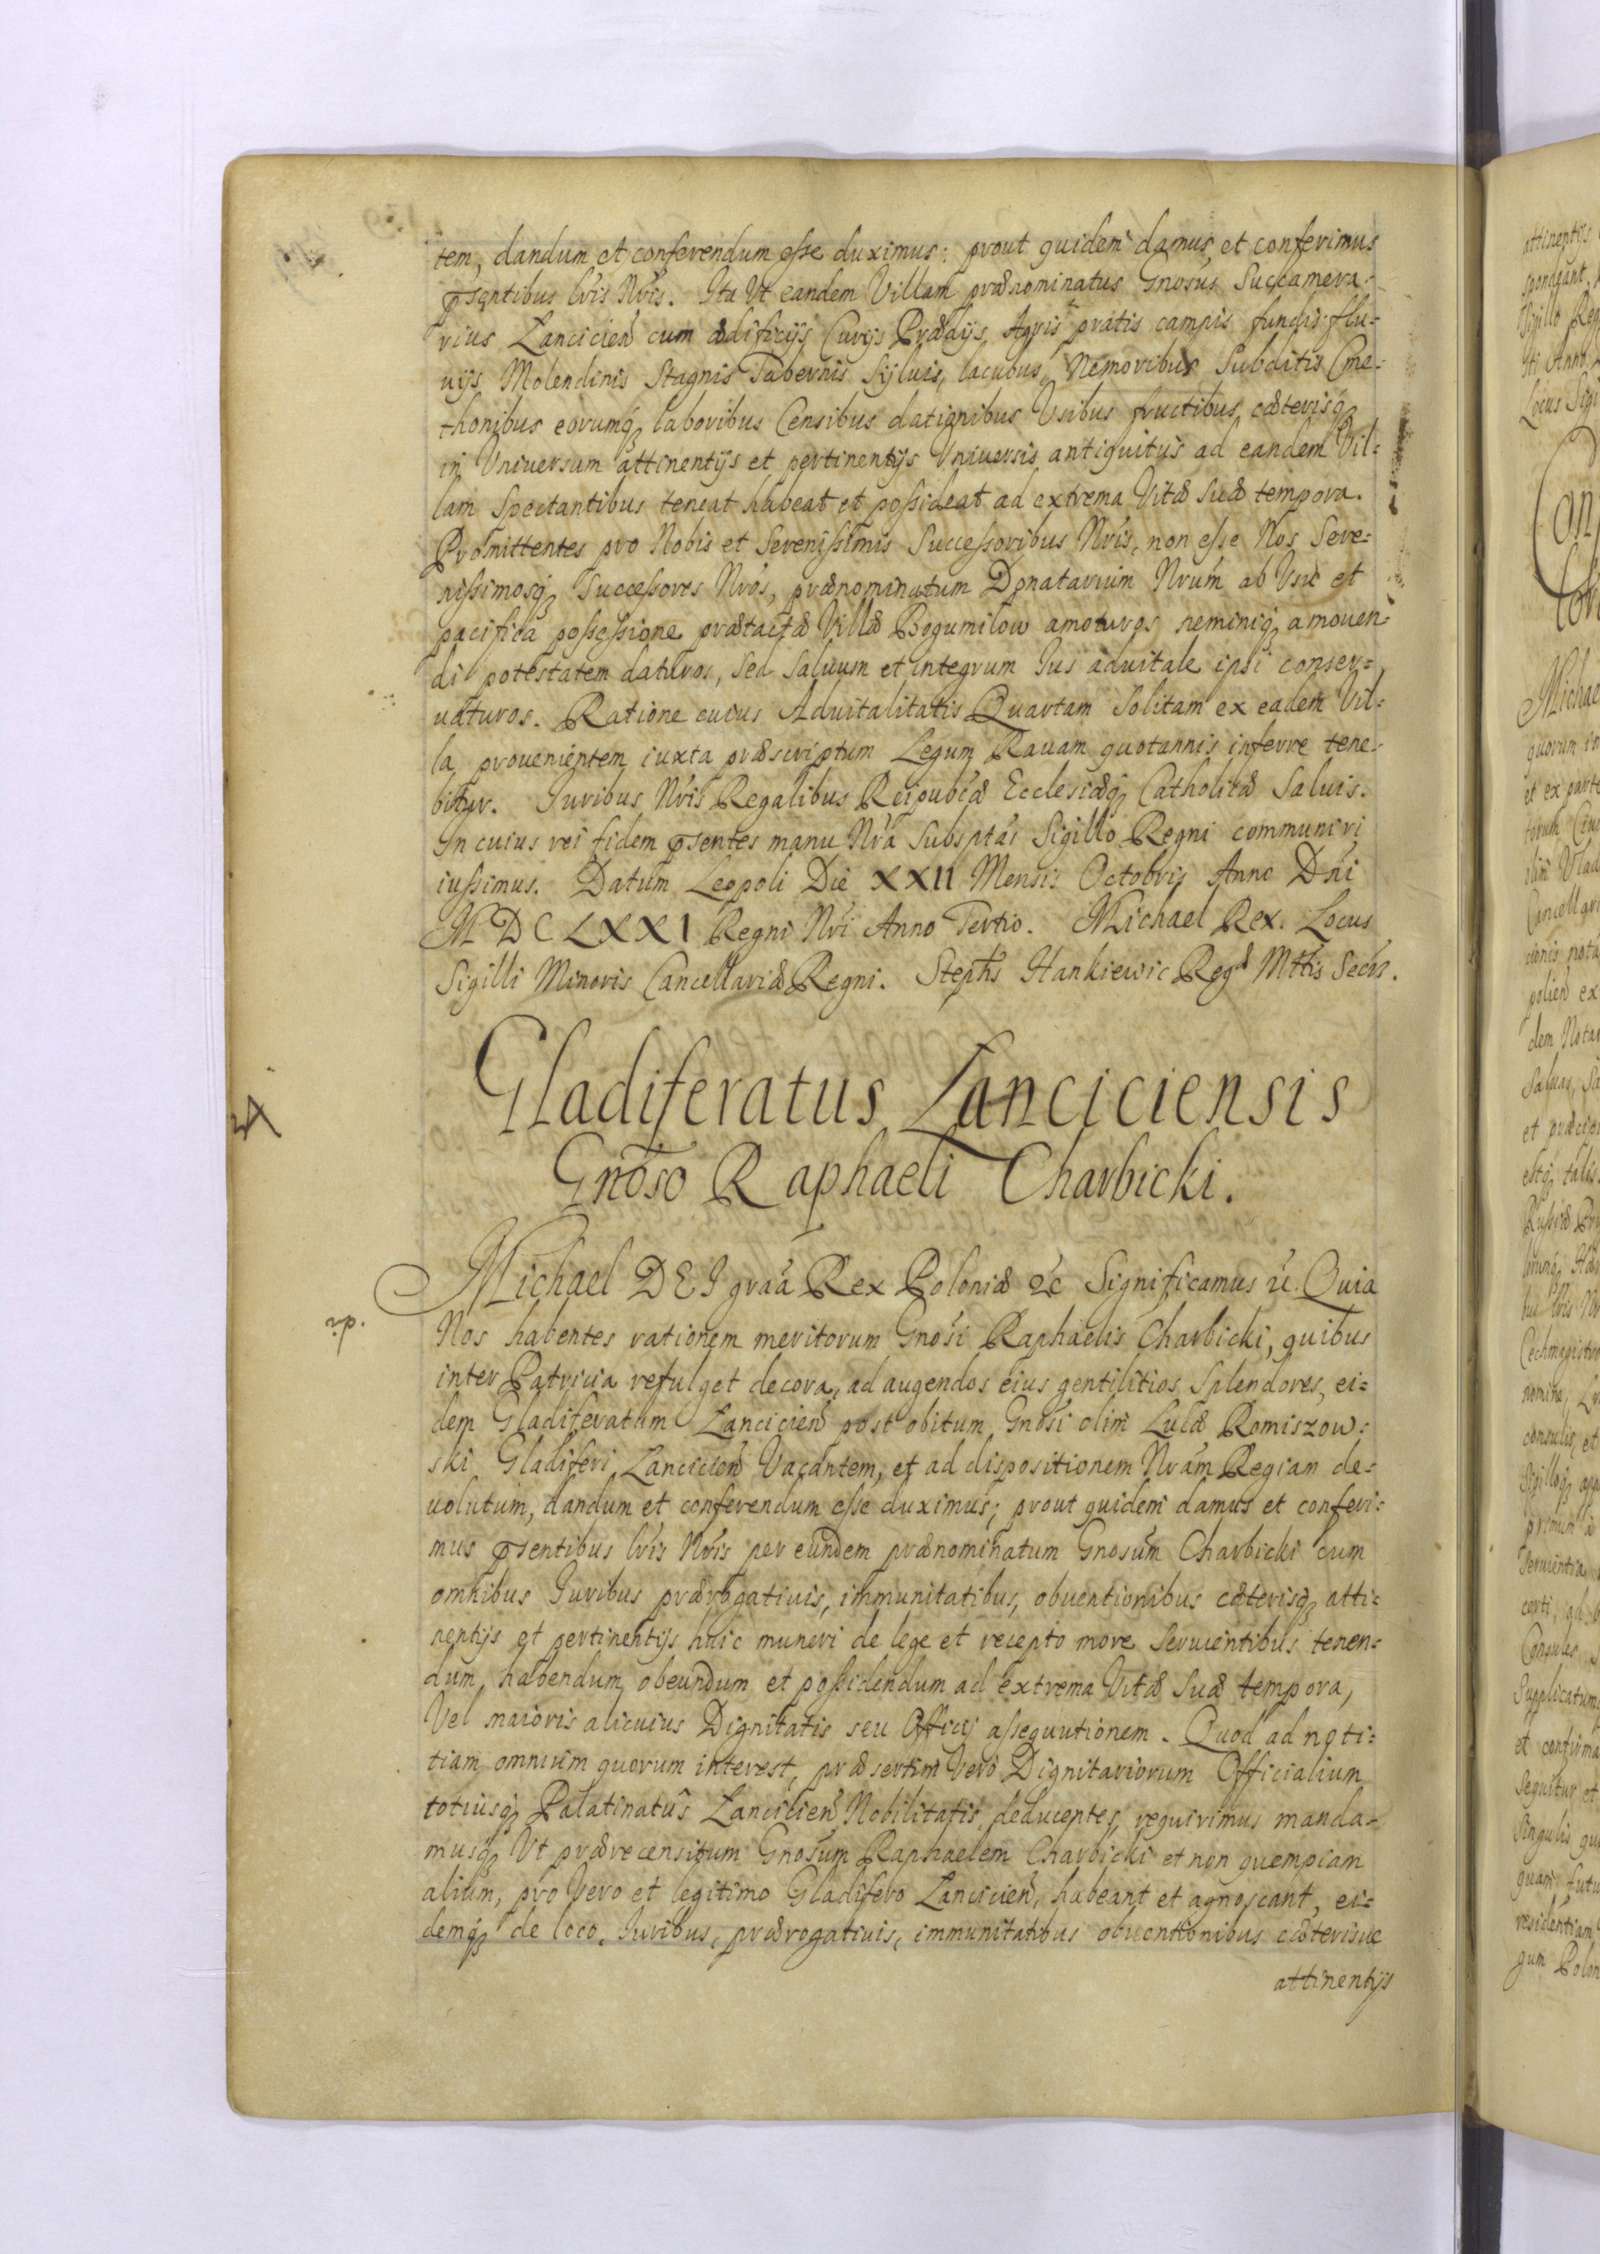 tem, dandum et conferendum esse duximus: prout quidem damus et conferimus
pñtibus lris Nris. Ita Vt eandem Villam prænominatus Gnosus Succamera-
rius Lancicien cum ædificijs Curijs Prædijs, Agris pratis campis fundis flu-
uijs Molendinis Stagnis Tabernis Syluis, lacubus, Nemoribus Subditis Cme-
thonibus eorumq laboribus Censibus dationibus Vsibus fructibus cæterisq
in Vniversum attinentijs et pertinentijs Vniuersis antiquitus ad eandem Vil-
lam Spectantibus teneat habeat et possideat ad extrema Vitæ Suæ tempora.
Promittentes pro Nobis et Serenissimis Successoribus Nris, non esse Nos Sere-
nissimosq Successores Nros, prænominatum Donatarium Nrum ab Vsu et
pacifica possessione prætactæ Villæ Bogumilow amoturos neminiq amouen-
di potestatem daturos, sed saluum et integrum Ius aduitale ipsi conser-
uaturos. Ratione cuius Aduitalitatis Quartam Solitam ex eadem Vil-
la prouenientem iuxta præscriptum Legum Rauam quotannis inferre tene-
bitur. Iuribus Nris Regalibus Reipubcæ Ecclesiæq Catholicæ Saluis.
In cuius rei fidem pñtes manu Nra Subsptas Sigillo Regni communiri
iussimus. Datum Leopoli Die XXII Mensis Octobris Anno Dni
MDCLXXI Regni Nri Anno Tertio. Michael Rex. Locus
Sigilli Minoris Cancellariæ Regni. Stephs Hankiewic Regæ Mttis Secrs.
Gladiferatus Lanciciensis
Gnoso Raphaeli Charbicki.
Michael DEI graa Rex Poloniæ &c Significamus &. Quia
Nos habentes rationem meritorum Gnosi Raphaelis Charbicki, quibus
inter Patricia refulget decora, ad augendos eius gentilitios Splendores, ei-
dem Gladiferatum Lancicien post obitum Gnosi olim Lucæ Romiszow-
ski Gladiferi Lancicien Vacantem, et ad dispositionem Nram Regiam de-
uolutum, dandum et conferendum esse duximus; prout quidem damus et conferi-
mus pñtibus lris Nris per eundem prænominatum Gnosum Charbicki cum
omnibus Iuribus prærogatiuis, immunitatibus, obuentionibus cæterisq atti-
nentijs et pertinentijs huic muneri de lege et recepto more Seruientibus tenen-
dum, habendum, obeundum et possidendum ad extrema Vitæ Suæ tempora,
Vel maioris alicuius Dignitatis seu Officij assequutionem. Quod ad noti-
tiam omnium quorum interest, præsertim Vero Dignitariorum Officialium
totiusq Palatinatus Lancicien Nobilitatis deducentes, requirimus manda-
musq Vt prærecensitum Gnosum Raphaelem Charbicki et non quempiam
alium, pro Vero et legitimo Gladifero Lancicien, habeant et agnoscant, ei-
demq de loco, Iuribus, prærogatiuis, immunitatibus obuentionibus cæterisue
attinentijs